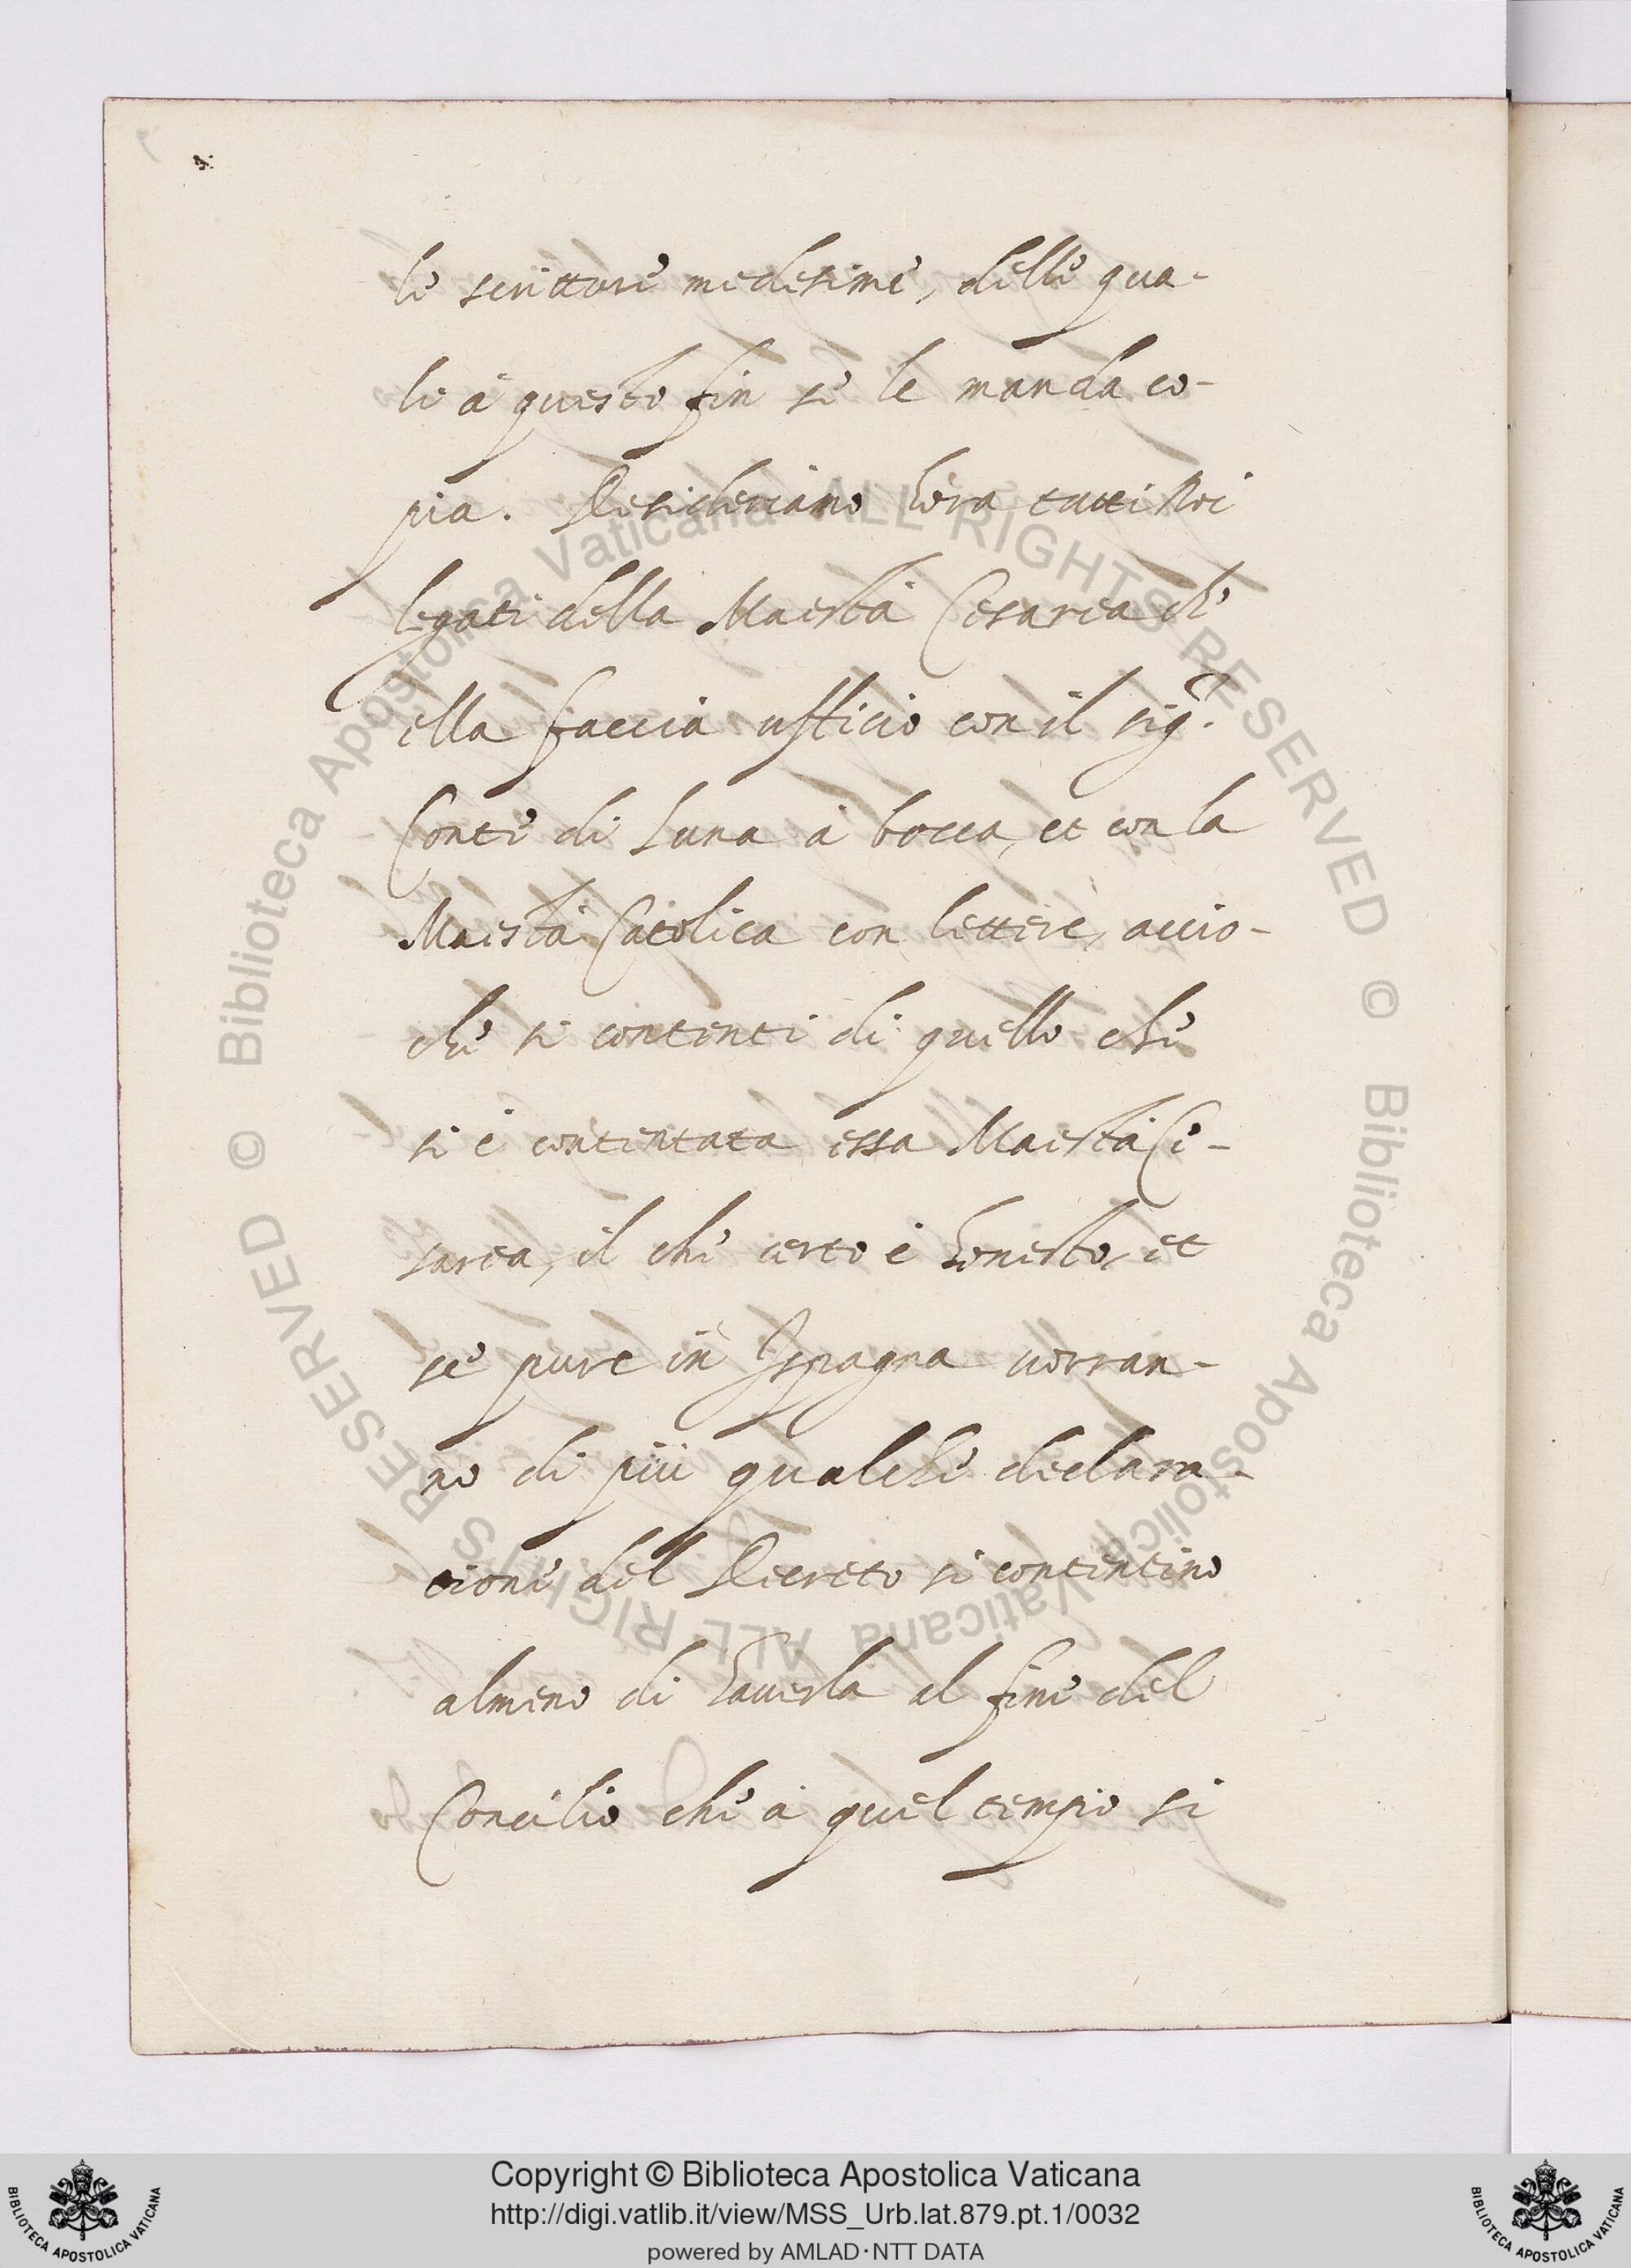 le scritture medesime, delle qua-
le à questo fin se le manda co-
pia. Desideriamo hora tutti Noi
legati della Maestà Cesarea che
ella faccia ufficio con il sig.r
Conte di Luna à bocca, et con la
Maestà Catolica con lettere, accio-
che si contenti di quello che
si è contentata essa Maestà Ce-
sarea, il che certo è honesto, et
se pure in Ispagna vorran-
no di più qualche declara-
tione del Decreto si contentino
almeno di haverla al fine del
Concilio che à quel tempo si
Biblioteca Apostolica Vaticana ALL RIGHTS RESERVED ©
Biblioteca Apostolica Vaticana ALL RIGHTS RESERVED ©
Copyright © Biblioteca Apostolica Vaticana
http://digi.vatlib.it/view/MSS_Urb.lat.879.pt.1/0032
powered by AMLAD·NTT DATA
BIBLIOTECA APOSTOLICA VATICANA
BIBLIOTECA APOSTOLICA VATICANA